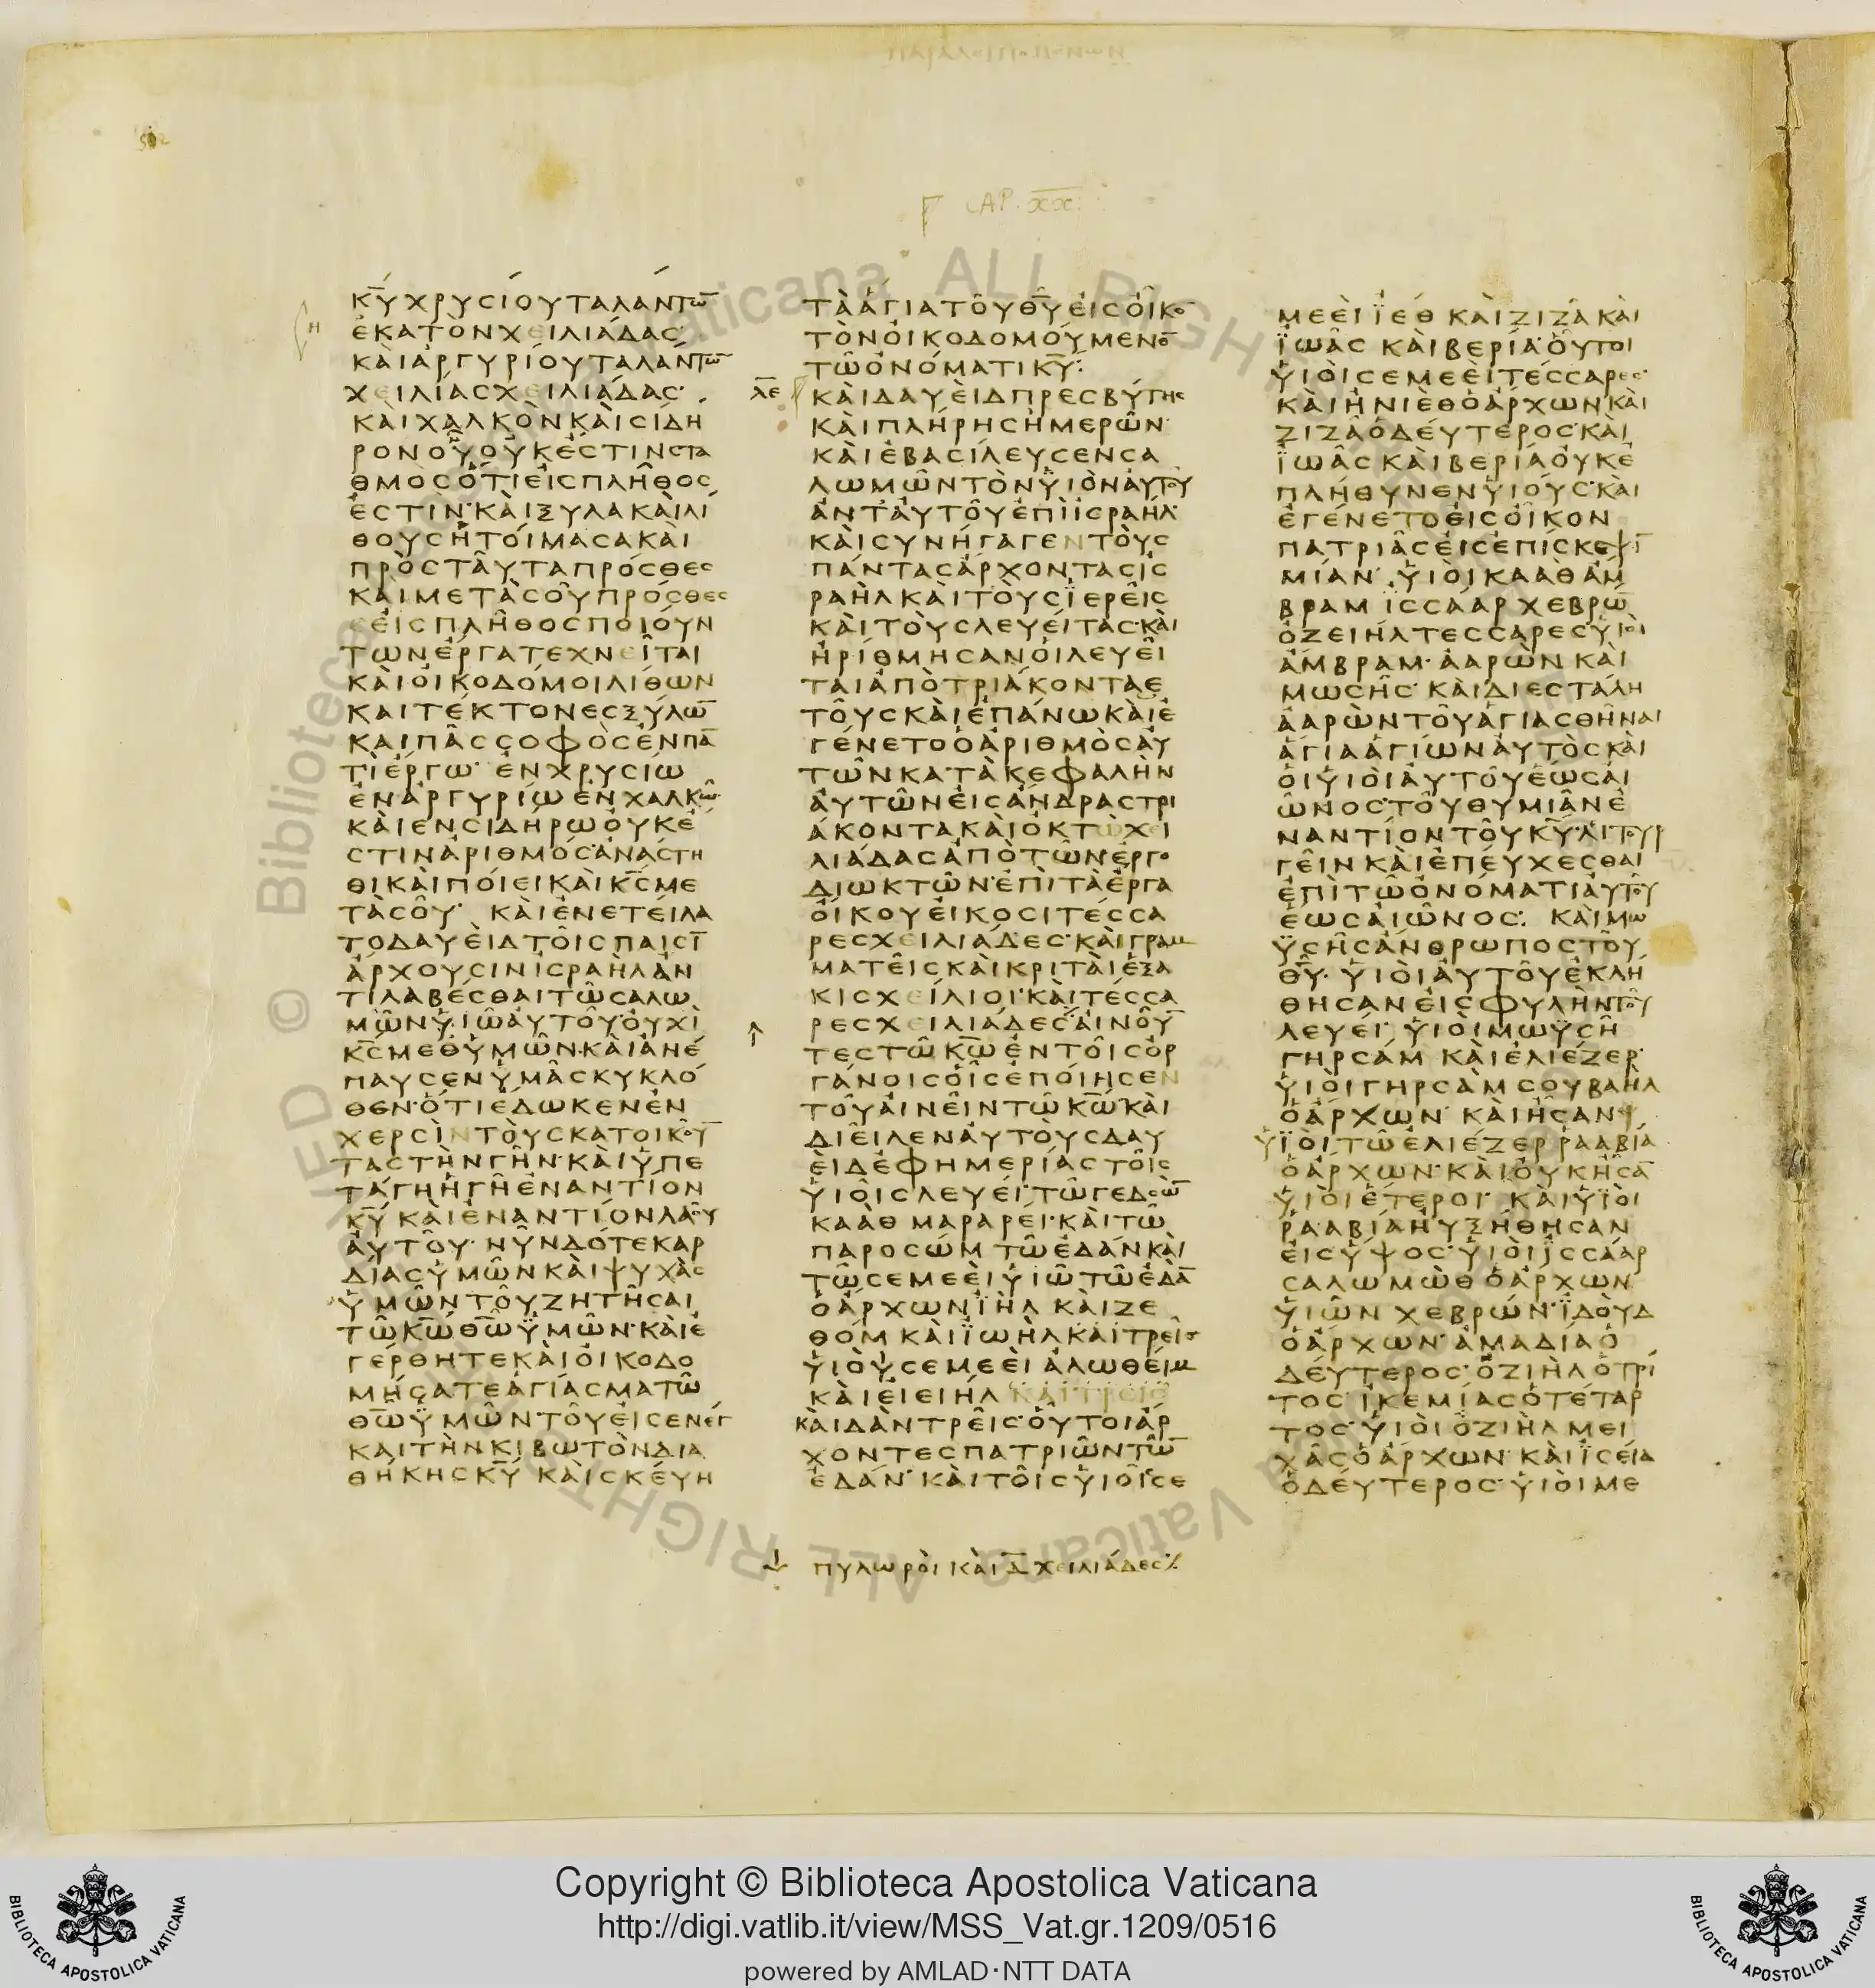 CAP. XX.
Κ̅Υ̅ ΧΡΥCΙΟΥΤΑΛΑΝΤΩ̅
ΕΚΑΤΟΝΧΕΙΛΙΑΔΑC
ΚΑΙΑΡΓΥΡΙΟΥΤΑΛΑΝΤΩ̅
ΧΕΙΛΙΑCΧΕΙΛΙΑΔΑC
ΚΑΙΧΑΛΚΟΝΚΑΙCΙΔΗ
ΡΟΝΟΥΟΥΚΕCΤΙΝCΤΑ
ΘΜΟCΟΤΙΕΙCΠΛΗΘΟC
ΕCΤΙΝ·ΚΑΙΞΥΛΑΚΑΙΛΙ
ΘΟΥCΗΤΟΙΜΑCΑΚΑΙ
ΠΡΟCΤΑΥΤΑΠΡΟCΘΕC
ΚΑΙΜΕΤΑCΟΥΠΡΟCΘΕC
ΕΙCΠΛΗΘΟCΠΟΙΟΥΝ
ΤΩΝΕΡΓΑΤΕΧΝΕΙΤΑΙ
ΚΑΙΟΙΚΟΔΟΜΟΙΛΙΘΩΝ
ΚΑΙΤΕΚΤΟΝΕCΞΥΛΩ̅
ΚΑΙΠΑCCΟΦΟCΕΝΠΑ̅
ΤΙΕΡΓΩ· ΕΝΧΡΥCΙΩ
ΕΝΑΡΓΥΡΙΩΕΝΧΑΛΚΩ
ΚΑΙΕΝCΙΔΗΡΩΟΥΚΕ
CΤΙΝΑΡΙΘΜΟC·ΑΝΑCΤΗ
ΘΙΚΑΙΠΟΙΕΙΚΑΙΚ̅C̅ΜΕ
ΤΑCΟΥ· ΚΑΙΕΝΕΤΕΙΛΑ
ΤΟΔΑΥΕΙΔΤΟΙCΠΑΙCΙ̅
ΑΡΧΟΥCΙΝΙCΡΑΗΛΑΝ
ΤΙΛΑΒΕCΘΑΙΤΩCΑΛΩ
ΜΩΝΥΙΩΑΥΤΟΥ·ΟΥΧΙ
Κ̅C̅ΜΕΘΥΜΩΝ·ΚΑΙΑΝΕ
ΠΑΥCΕΝΥΜΑCΚΥΚΛΟ
ΘΕΝ·ΟΤΙΕΔΩΚΕΝΕΝ
ΧΕΡCΙΝΤΟΥCΚΑΤΟΙΚΟΥ̅
ΤΑCΤΗΝΓΗΝ·ΚΑΙΥΠΕ
ΤΑΓΗΗΓΗΕΝΑΝΤΙΟΝ
Κ̅Υ̅ ΚΑΙΕΝΑΝΤΙΟΝΛΑΟΥ
ΑΥΤΟΥ· ΝΥΝΔΟΤΕΚΑΡ
ΔΙΑCΥΜΩΝΚΑΙΨΥΧΑC
ΥΜΩΝΤΟΥΖΗΤΗCΑΙ
ΤΩΚ̅Ω̅Θ̅Ω̅ΥΜΩΝ·ΚΑΙΕ
ΓΕΡΘΗΤΕΚΑΙΟΙΚΟΔΟ
ΜΗCΑΤΕΑΓΙΑCΜΑΤΩ
Θ̅Ω̅ΥΜΩΝ·ΤΟΥΕΙCΕΝΕΓ
ΚΑΙΤΗΝΚΙΒΩΤΟΝΔΙΑ
ΘΗΚΗCΚ̅Υ̅ ΚΑΙCΚΕΥΗ
ΤΑΑΓΙΑΤΟΥΘ̅Υ̅ΕΙCΟΙΚΟ̅
ΤΟΝΟΙΚΟΔΟΜΟΥΜΕΝΟ̅
ΤΩΟΝΟΜΑΤΙΚ̅Υ̅:
Λ̅Ε̅ ΚΑΙΔΑΥΕΙΔΠΡΕCΒΥΤΗC
ΚΑΙΠΛΗΡΗCΗΜΕΡΩΝ·
ΚΑΙΕΒΑCΙΛΕΥCΕΝCΑ
ΛΩΜΩΝΤΟΝΥΙΟΝΑΥΤΟΥ
ΑΝΤΑΥΤΟΥΕΠΙΙCΡΑΗΛ·
ΚΑΙCΥΝΗΓΑΓΕΝΤΟΥC
ΠΑΝΤΑCΑΡΧΟΝΤΑCΙC
ΡΑΗΛΚΑΙΤΟΥCΪΕΡΕΙC
ΚΑΙΤΟΥCΛΕΥΕΙΤΑC·ΚΑΙ
ΗΡΙΘΜΗCΑΝΟΙΛΕΥΕΙ
ΤΑΙΑΠΟΤΡΙΑΚΟΝΤΑΕ
ΤΟΥCΚΑΙΕΠΑΝΩΚΑΙΕ
ΓΕΝΕΤΟΟΑΡΙΘΜΟCΑΥ
ΤΩΝΚΑΤΑΚΕΦΑΛΗΝ
ΑΥΤΩΝΕΙCΑΝΔΡΑCΤΡΙ
ΑΚΟΝΤΑΚΑΙΟΚΤΩΧΕΙ
ΛΙΑΔΑCΑΠΟΤΩΝΕΡΓΟ
ΔΙΩΚΤΩΝ·ΕΠΙΤΑΕΡΓΑ
ΟΙΚΟΥΕΙΚΟCΙΤΕCCΑ
ΡΕCΧΕΙΛΙΑΔΕC·ΚΑΙΓΡΑΜ
ΜΑΤΕΙCΚΑΙΚΡΙΤΑΙΕΞΑ
ΚΙCΧΕΙΛΙΟΙ·ΚΑΙΤΕCCΑ
ΡΕCΧΕΙΛΙΑΔΕCΑΙΝΟΥ̅
ΤΕCΤΩΚ̅Ω̅ΕΝΤΟΙCΟΡ
ΓΑΝΟΙCΟΙCΕΠΟΙΗCΕΝ
ΤΟΥΑΙΝΕΙΝΤΩΚ̅Ω̅ΚΑΙ
ΔΙΕΙΛΕΝΑΥΤΟΥCΔΑΥ
ΕΙΔΕΦΗΜΕΡΙΑCΤΟΙC
ΥΙΟΙCΛΕΥΕΙ·ΤΩΓΕΔCΩ̅
ΚΑΑΘ ΜΑΡΑΡΕΙ·ΚΑΙΤΩ
ΠΑΡΟCΩΜ ΤΩΕΔΑΝΚΑΙ
ΤΩCΕΜΕΕΙΥΙΩΤΩΕΔΑ̅
ΟΑΡΧΩΝΪΗΛ ΚΑΙΖΕ
ΘΟΜ ΚΑΙΪΩΗΛΚΑΙΤΡΕΙC
ΥΙΟΥCΕΜΕΕΙ ΑΛΩΘΕΙΜ
ΚΑΙΕΙΕΙΗΛ ΚΑΙΤΡΕΙC
ΚΑΙΔΑΝΤΡΕΙC·ΟΥΤΟΙΑΡ
ΧΟΝΤΕCΠΑΤΡΙΩΝΤΩ̅
ΕΔΑΝ· ΚΑΙΤΟΙCΥΙΟΙCCΕ
ΠΥΛΩΡΟΙ ΚΑΙ Δ̅ ΧΕΙΛΙΑΔΕC
ΜΕΕΙ ΪΕΘ ΚΑΙΖΙΖΑΚΑΙ
ΪΩΑC ΚΑΙΒΕΡΙΑ·ΟΥΤΟΙ
ΥΙΟΙCΕΜΕΕΙΤΕCCΑΡΕC·
ΚΑΙΗΝΙΕΘΟΑΡΧΩΝΚΑΙ
ΖΙΖΑΟΔΕΥΤΕΡΟC·ΚΑΙ
ΪΩΑCΚΑΙΒΕΡΙΑΟΥΚΕ
ΠΛΗΘΥΝΕΝΥΙΟΥC·ΚΑΙ
ΕΓΕΝΕΤΟΕΙCΟΙΚΟΝ
ΠΑΤΡΙΑCΕΙCΕΠΙCΚΕΨΙ̅
ΜΙΑΝ· ΥΙΟΙΚΑΑΘΑΜ
ΒΡΑΜ ΪCCΑΑΡ ΧΕΒΡΩ̅
ΟΖΕΙΗΛΤΕCCΑΡΕC·ΥΙΟΙ
ΑΜΒΡΑΜ· ΑΑΡΩΝΚΑΙ
ΜΩCΗC· ΚΑΙΔΙΕCΤΑΛΗ
ΑΑΡΩΝΤΟΥΑΓΙΑCΘΗΝΑΙ
ΑΓΙΑΑΓΙΩΝΑΥΤΟCΚΑΙ
ΟΙΥΙΟΙΑΥΤΟΥΕΩCΑΙ
ΩΝΟC·ΤΟΥΘΥΜΙΑΝΕ
ΝΑΝΤΙΟΝΤΟΥΚ̅Υ̅·ΛΙΤΟΥΡ
ΓΕΙΝΚΑΙΕΠΕΥΧΕCΘΑΙ
ΕΠΙΤΩΟΝΟΜΑΤΙΑΥΤΟΥ
ΕΩCΑΙΩΝΟC: ΚΑΙΜΩ
ΥCΗCΑΝΘΡΩΠΟCΤΟΥ
Θ̅Υ̅· ΥΙΟΙΑΥΤΟΥΕΚΛΗ
ΘΗCΑΝΕΙCΦΥΛΗΝΤΟΥ
ΛΕΥΕΙ· ΥΙΟΙΜΩΥCΗ
ΓΗΡCΑΜ ΚΑΙΕΛΙΕΖΕΡ·
ΥΙΟΙΓΗΡCΑΜCΟΥΒΑΗΛ
ΟΑΡΧΩΝ· ΚΑΙΗCΑΝ
ΥΪΟΙΤΩΕΛΙΕΖΕΡ ΡΑΑΒΙΑ
ΟΑΡΧΩΝ·ΚΑΙΟΥΚΗCΑ̅
ΥΙΟΙΕΤΕΡΟΙ· ΚΑΙΥΪΟΙ
ΡΑΑΒΙΑΗΥΞΗΘΗCΑΝ
ΕΙCΥΨΟC·ΥΙΟΙΪCCΑΑΡ
CΑΛΩΜΩΘ ΟΑΡΧΩΝ
ΥΙΩΝ ΧΕΒΡΩΝ·ΪΔΟΥΔ
ΟΑΡΧΩΝ· ΑΜΑΔΙΑΟ
ΔΕΥΤΕΡΟC·ΟΖΙΗΛΟΤΡΙ
ΤΟC·ΙΚΕΜΙΑCΟΤΕΤΑΡ
ΤΟC·ΥΙΟΙΟΖΙΗΛΜΕΙ
ΧΑCΟΑΡΧΩΝ·ΚΑΙΪCΕΙΑ
ΟΔΕΥΤΕΡΟC·ΥΙΟΙΜΕ
Copyright © Biblioteca Apostolica Vaticana
http://digi.vatlib.it/view/MSS_Vat.gr.1209/0516
powered by AMLAD·NTT DATA
BIBLIOTECA APOSTOLICA VATICANA
BIBLIOTECA APOSTOLICA VATICANA